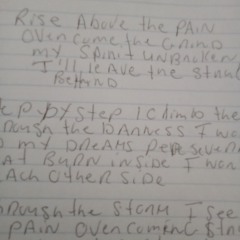 Rise Above the PAIN
Overcome the Grind
my Spirit UNBROKEN
I'll leAve the
Behind
ep by Step I climb the
rough the DARNESS I wo
my DREAMS persever
AT BURN inside I won
ACH Other Side
hrough the Storm I see
PAIN OVERCOMING